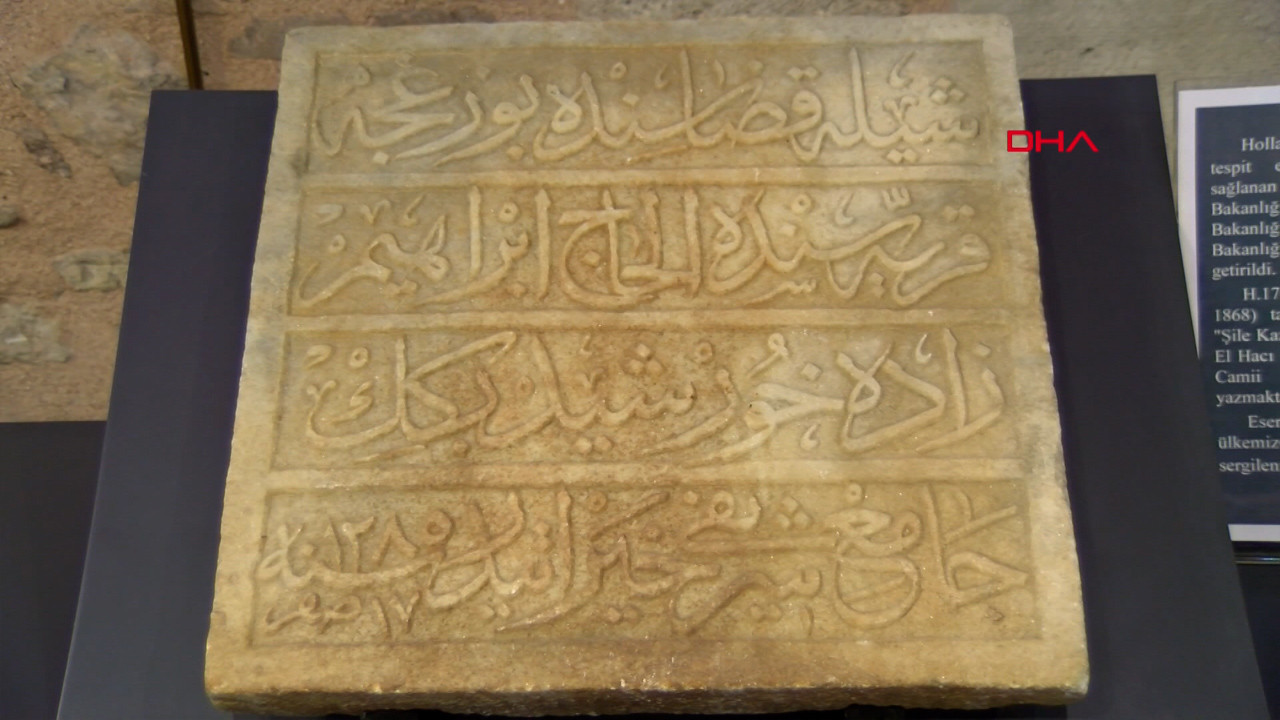 شيله قضاسنده بورغجه
قريه سنده الحاج ابراهيم
زاده خورشيد بكك
جامع شريفى خيراتيدر سنه ١٢٨٥
١٧ صفر
DHA
Holla
tespit e
sağlanan
Bakanlığ
Bakanlığ
Bakanlığ
getirildi.
H.17
1868) ta
"Şile Kaz
El Hacı
Camii
yazmakt
Eser
ülkemiz
sergilen